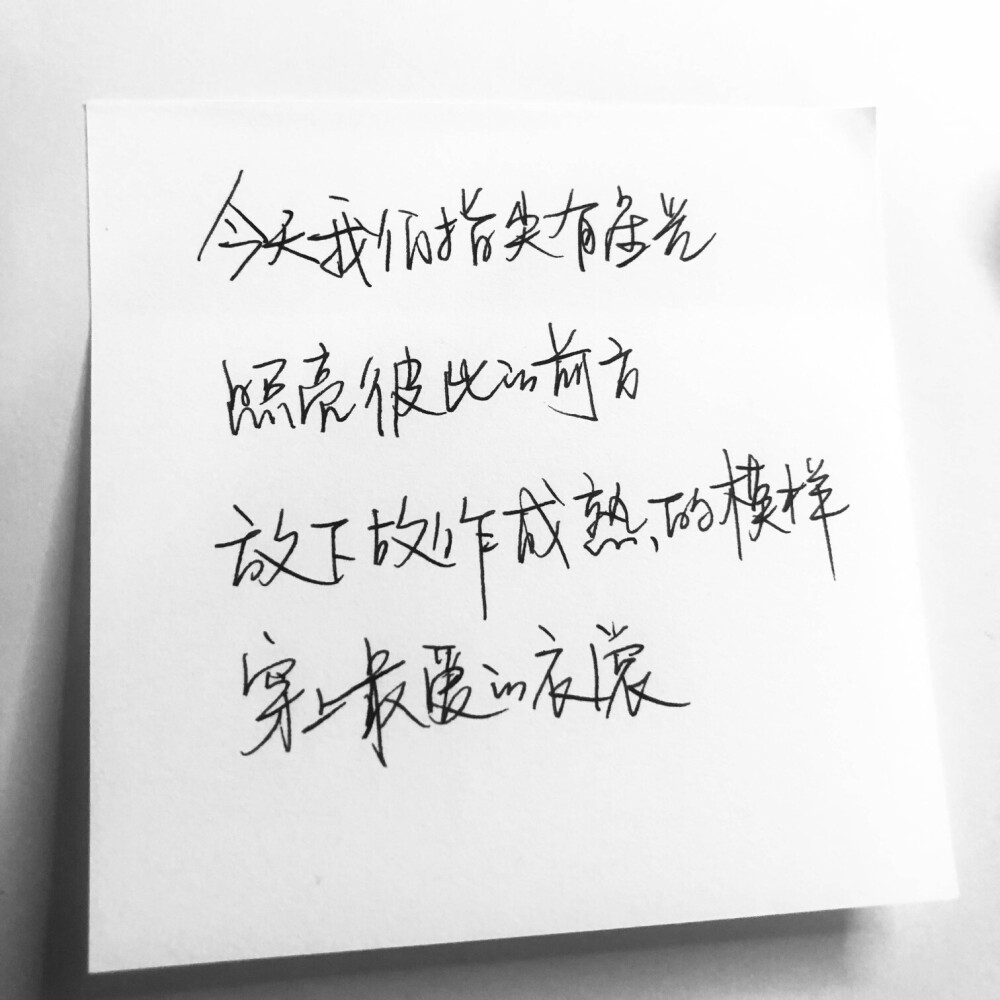 今天我们指尖有余光
照亮彼此的前方
放下故作成熟的模样
穿上最爱的衣裳